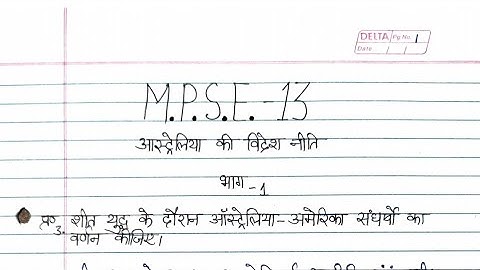 DELTA Pg No. 1
Date / /
M.P.S.E.-13
आस्ट्रेलिया की विदेश नीति
भाग -1
प्र० 3. शीत युद्ध के दौरान ऑस्ट्रेलिया-अमेरिका संघर्षो का
वर्णन कीजिए।